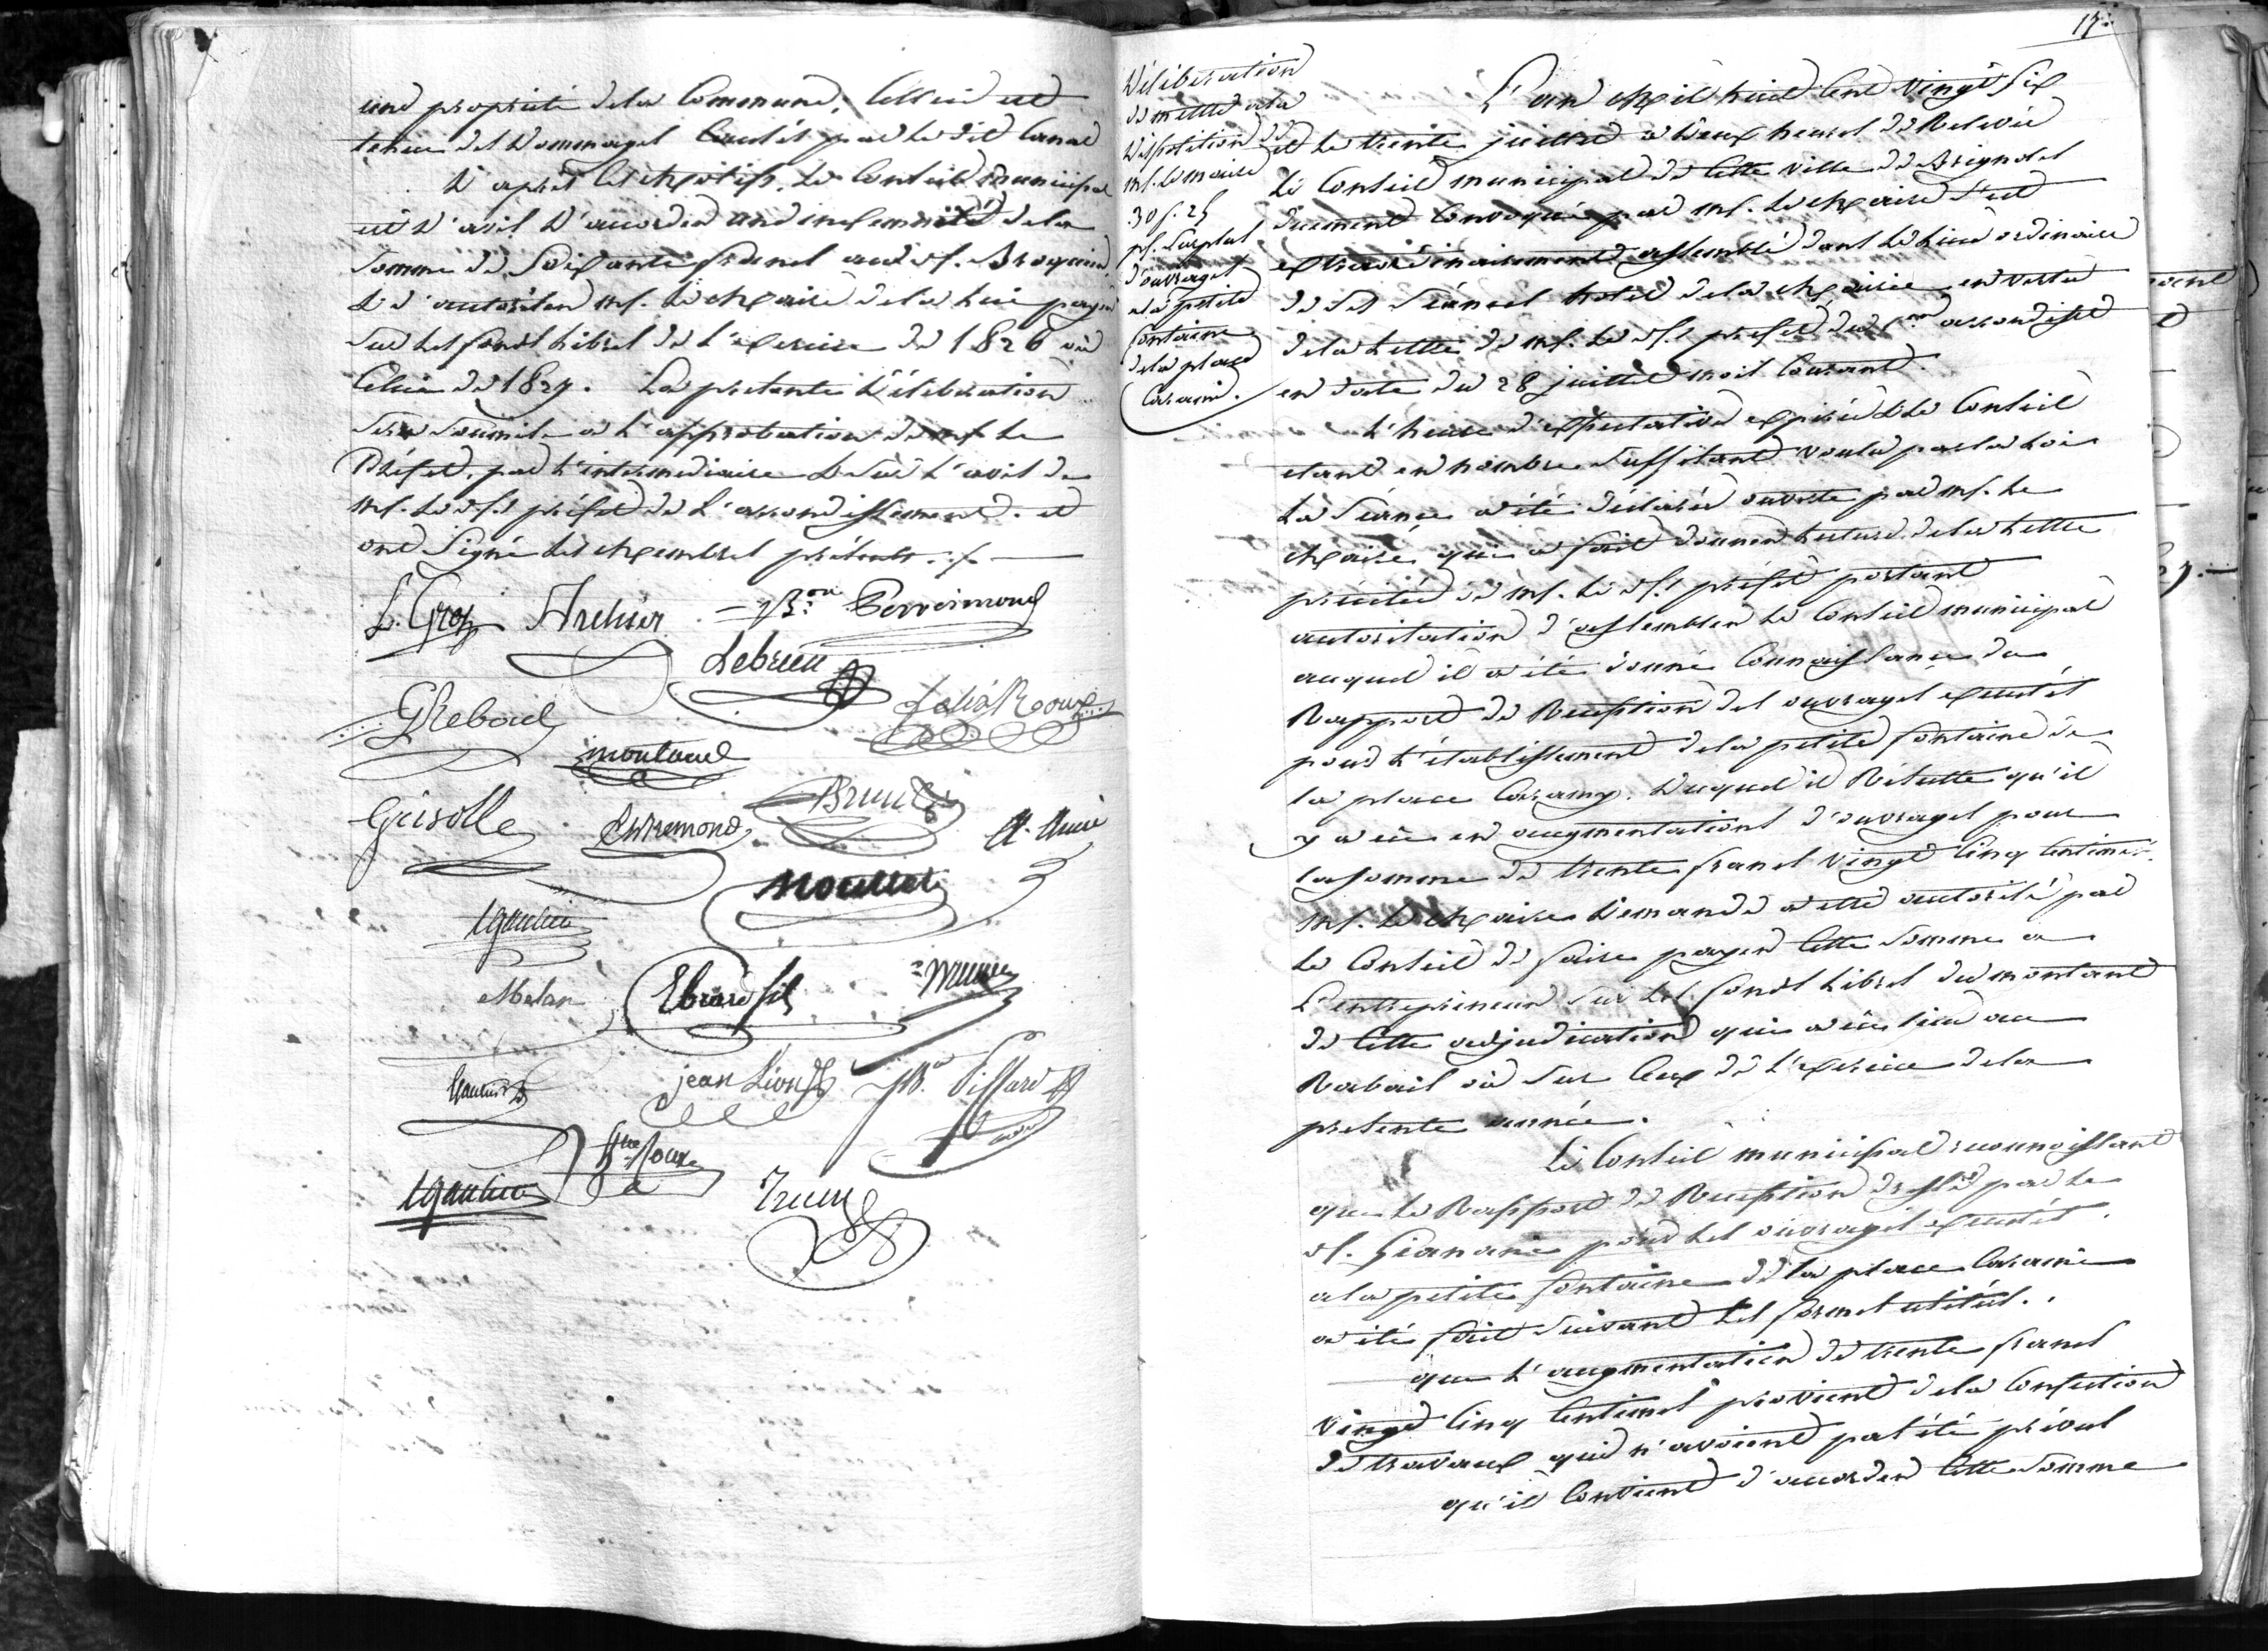 une propriété de la Commune, Celle ci est
tenue des dommages Causés par le dit Canal
D'après Ces Motifs, Le Conseil municipal
est d'avis d'accorder une indemnité de la
Somme de Soixante francs au Sr. Broquier,
& d'autoriser Mr. Le Maire de la lui payer
Sur les fonds libres de l'exercice de 1826 où
Celui de 1827. La presente Délibération
Sera Soumise à l'approbation de Mr. Le
Préfet, par l'intermediaire & Sur l'avis de
Mr. Le Ss. préfet de l'arrondissement. et
ont Signé les Membres présents ./.
L. Gros Archier Bon. Perreimond
Lebrun
G Reboul Felix Roux
montaud
Grisolle Brun
Moullet
Maslan Ebrard fils
Gautier jean Lion Jh. Pissard
Roux
17.
Délibération
de mettre à la
disposition de
Mr. Le maire
30 f. 25
pr. Surplus
d'ouvrages
à la petite
fontaine
de la place
Carami.
L'an Mil huit Cent Vingt Six
et le trente juillet à deux heures de Relevée
Le Conseil municipal de Cette Ville de Brignoles
duement Convoqué par Mr. Le Maire S'est
extraordinairement assemblé dans le lieu ordinaire
de Ses Séances hotel de la Mairie en vertu
de la Lettre de Mr. Le Ss. préfet du arrondisst
en date du 28 juillet mois Courant.
L'heure d'expectative expirée & Le Conseil
étant en nombre Suffisant voulu par la loi
La Séance a été déclarée ouverte par Mr. Le
Maire qui a fait donner lecture de la Lettre
précitée de Mr. Le Ss. préfet portant
autorisation d'assembler Le Conseil municipal
auquel il a été donné Connaissance du
Rapport de Reception des ouvrages executés
pour l'établissement de la petite fontaine de
la place Caramy. Duquel il Résulte qu'il
y a eu en augmentations d'ouvrages pour
la somme de trente francs vingt Cinq Centimes.
Mr. Le Maire Demande à être autorisé par
Le Conseil de faire payer Cette Somme a
L'entrepreneur Sur les fonds libres du montant
de Cette adjudication qui a eu lieu au
Rabais où Sur Ceux de l'exercice de la
presente année.
Le Conseil municipal reconnoissant
que Le Rapport de Reception dressé par le
Sr. pour les ouvrages executés
à la petite fontaine de la place Carami
a été fait Suivant les formes utiles.
que l'augmentation de trente francs
Vingt Cinq Centimes provient de la Confection
de travaux qui n'avoient pas été prévus
qu'il Convient d'accorder Cette Somme